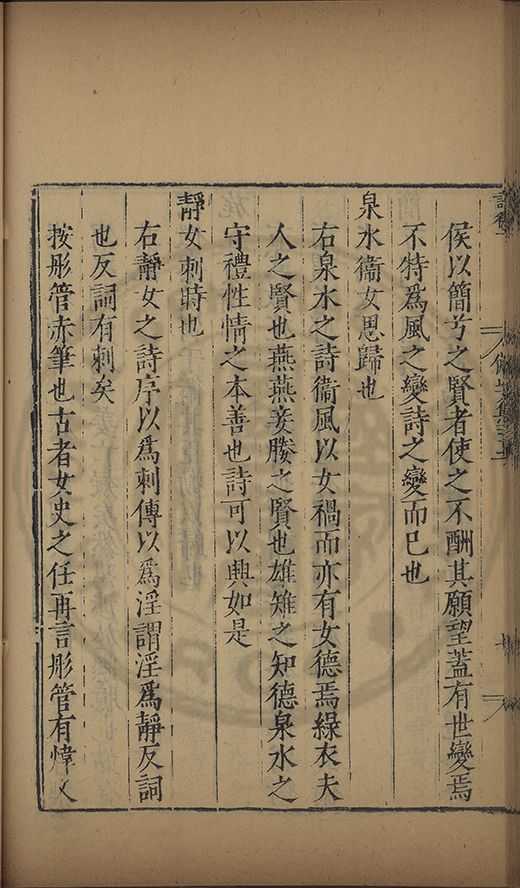 侯以簡兮之賢者使之不酬其願望蓋有世變焉
不特為風之變詩之變而已也
泉水衞女思歸也
右泉水之詩衞風以女禍而亦有女德焉綠衣夫
人之賢也燕燕妾媵之賢也雄雉之知德泉水之
守禮性情之本善也詩可以興如是
靜女刺時也
右靜女之詩序以為刺傳以為淫謂淫為靜反詞
也反詞有刺矣
按彤管赤筆也古者女史之任再言彤管有煒文